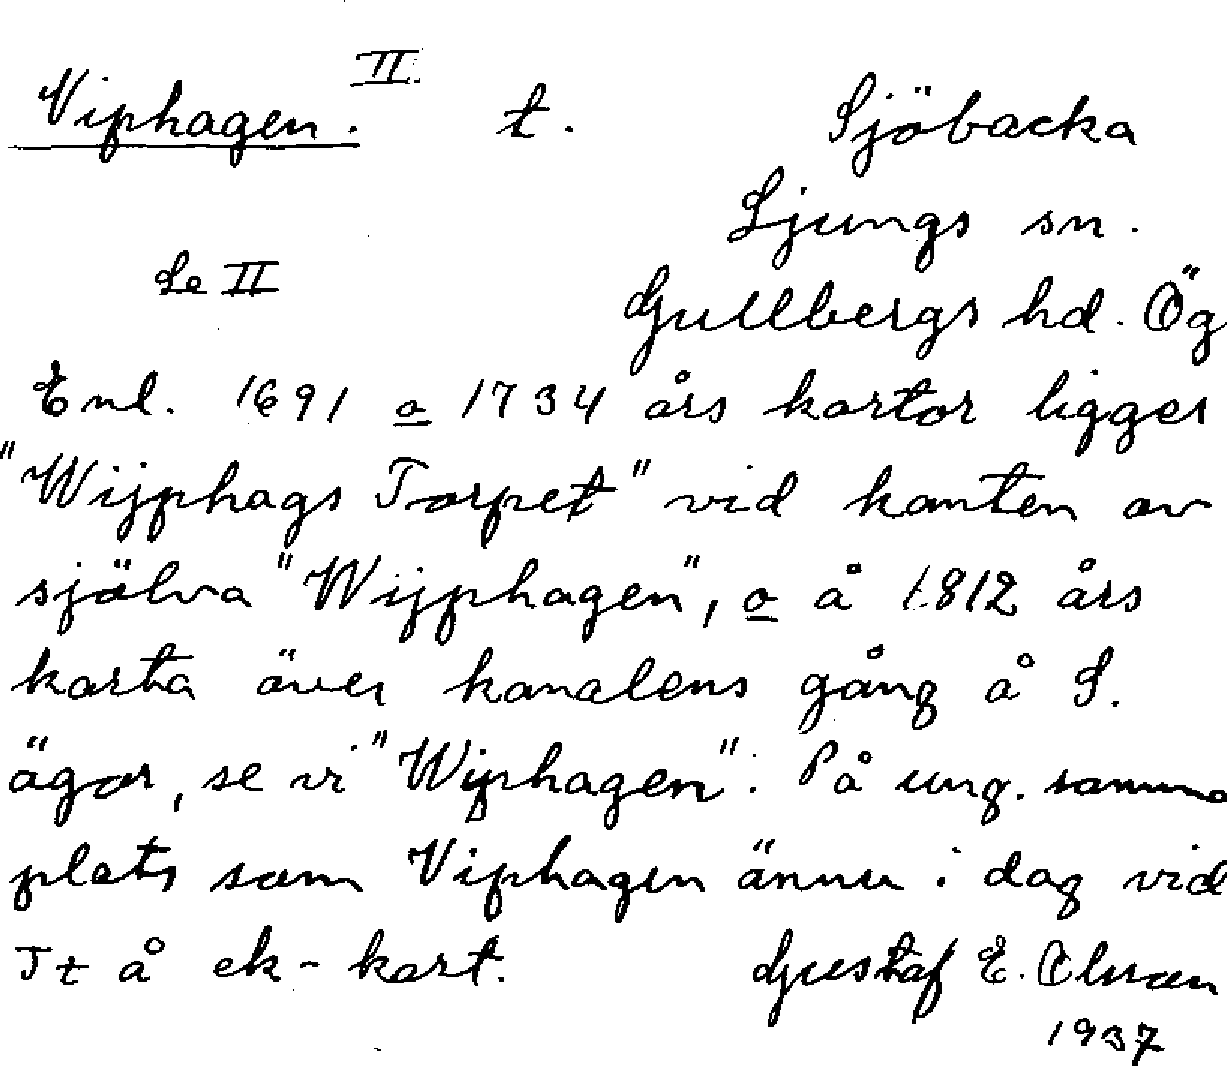 Viphagen. II. t. Sjöbacka
Ljungs sn.
Se II
Gullbergs hd. Ög
Enl. 1691 o 1734 års kartor ligger
"Wijphags Torpet" vid kanten av
själva "Wijphagen", o å 1812 års
karta över kanalens gång å S.
ägor, se vi "Wiphagen". På ung. samma
plats som Viphagen ännu i dag vid
Tt å ek-kart. Gustaf E. Olsson
1937